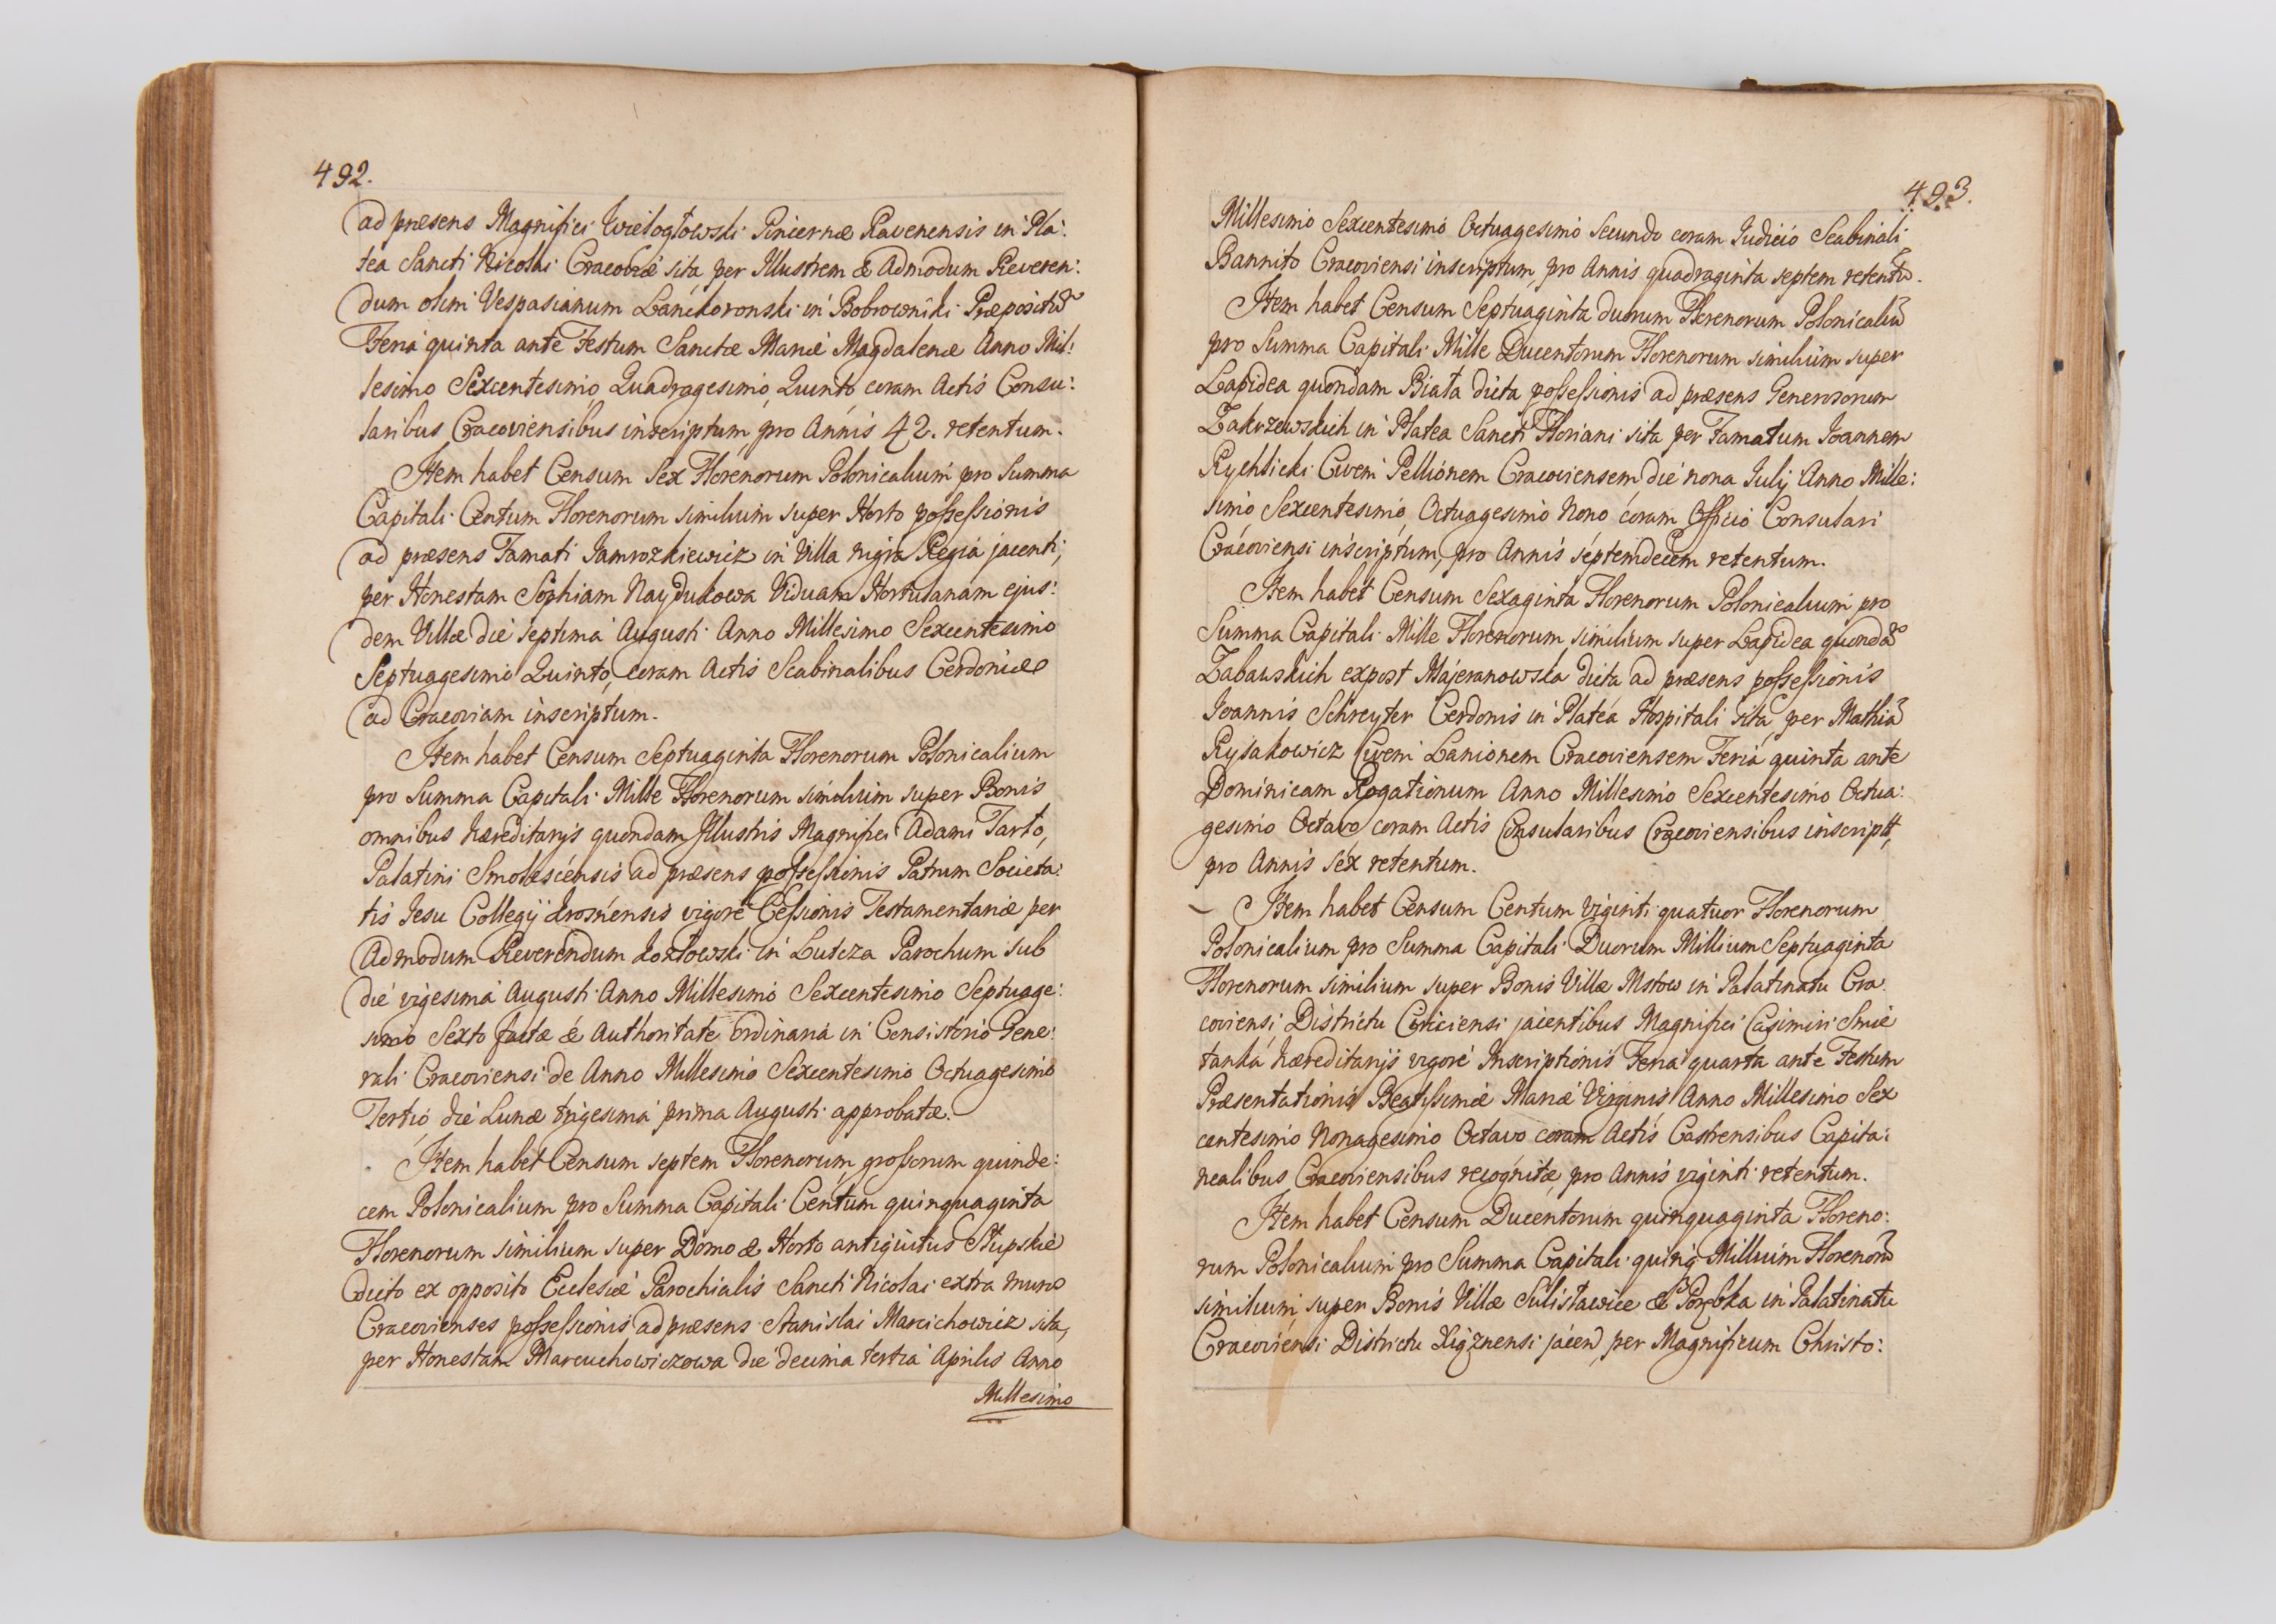 492.
ad præsens Magnifici Wielogłowski Pincernæ Ravenensis in Pla:
tea Sancti Nicolai Cracoviæ sita per Illustrem & Admodum Reveren:
dum olim Vespasianum Lanckoronski in Bobrowniki Præpositū
Feria quinta ante Festum Sanctæ Mariæ Magdalenæ Anno Mil:
lesimo Sexcentesimo Quadragesimo Quinto coram Actis Consu:
laribus Cracoviensibus inscriptum pro Annis 42. retentum.
Item habet Censum Sex Florenorum Polonicalium pro Summa
Capitali Centum Florenorum similium super Horto possessionis
ad præsens Famati Jamrozkiewicz in Villa nigra Regia jacenti,
per Honestam Sophiam Naydukowa Viduam Hortulanam ejus:
dem Villæ die septima Augusti Anno Millesimo Sexcentesimo
Septuagesimo Quinto, coram Actis Scabinalibus Cerdoniæ
ad Cracoviam inscriptum.
Item habet Censum Septuaginta Florenorum Polonicalium
pro Summa Capitali Mille Florenorum similium super Bonis
omnibus hæreditarijs quondam Illustris Magnifici Adami Tarło,
Palatini Smolesciensis ad præsens possessionis Patrum Societa:
tis Jesu Collegij Krosnensis vigore Cessionis Testamentariæ per
Admodum Reverendum Kozłowski in Lutcza Parochum sub
die vigesima Augusti Anno Millesimo Sexcentesimo Septuage:
simo Sexto factæ & Authoritate Ordinaria in Consistorio Gene:
rali Cracoviensi de Anno Millesimo Sexcentesimo Octuagesimo
Tertio die Lunæ trigesima prima Augusti approbatæ.
Item habet Censum septem Florenorum grossorum quinde:
cem Polonicalium pro Summa Capitali Centum quinquaginta
Florenorum similium super Domo & Horto antiquitus Słupskie
dicto ex opposito Ecclesiæ Parochialis Sancti Nicolai extra muros
Cracovienses possessionis ad præsens Stanislai Marcichowicz sita,
per Honestam Marcuchowiczowa die decima tertia Aprilis Anno
Millesimo
493.
Millesimo Sexcentesimo Octuagesimo Secundo coram Judicio Scabinali
Bannito Cracoviensi inscriptum, pro Annis quadraginta septem retentū.
Item habet Censum Septuaginta duorum Florenorum Polonicaliū
pro Summa Capitali Mille Ducentorum Florenorum similium super
Lapidea quondam Biała dicta possessionis ad præsens Generosorum
Zakrzewskich in Platea Sancti Floriani sita per Famatum Joannem
Rychlicki Civem Pellionem Cracoviensem die nona Julij Anno Mille:
simo Sexcentesimo Octuagesimo Nono coram Officio Consulari
Cracoviensi inscriptum, pro Annis septemdecem retentum.
Item habet Censum Sexaginta Florenorum Polonicalium pro
Summa Capitali Mille Florenorum similium super Lapidea quondā
Zabawskich expost Majeranowska dicta ad præsens possessionis
Joannis Schreyter Cerdonis in Platea Hospitali sita, per Mathiā
Rysakowicz Civem Lanionem Cracoviensem Feria quinta ante
Dominicam Rogationum Anno Millesimo Sexcentesimo Octua:
gesimo Octavo coram Actis Consularibus Cracoviensibus inscriptū,
pro Annis sex retentum.
Item habet Censum Centum Viginti quatuor Florenorum
Polonicalium pro Summa Capitali Duorum Millium Septuaginta
Florenorum similium super Bonis Villæ Mstow in Palatinatu Cra
coviensi Districtu Ciriciensi jacentibus Magnifici Casimiri Smie
tanka hæreditarijs vigore Inscriptionis Feria quarta ante Festum
Præsentationis Beatissimæ Mariæ Virginis Anno Millesimo Sex
centesimo Nonagesimo Octavo coram Actis Castrensibus Capita:
nealibus Cracoviensibus recognitæ, pro Annis viginti retentum.
Item habet Censum Ducentorum quinquaginta Floreno:
rum Polonicalium pro Summa Capitali quinq Millium Florenorū
similium, super Bonis Villæ Sulisławice & Porębka in Palatinatu
Cracoviensi Districtu Xiążnensi jacen, per Magnificum Christo: